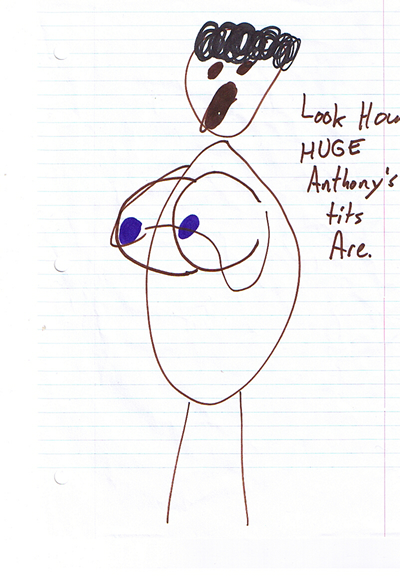 Look How
HUGE
Anthony's
tits
Are.